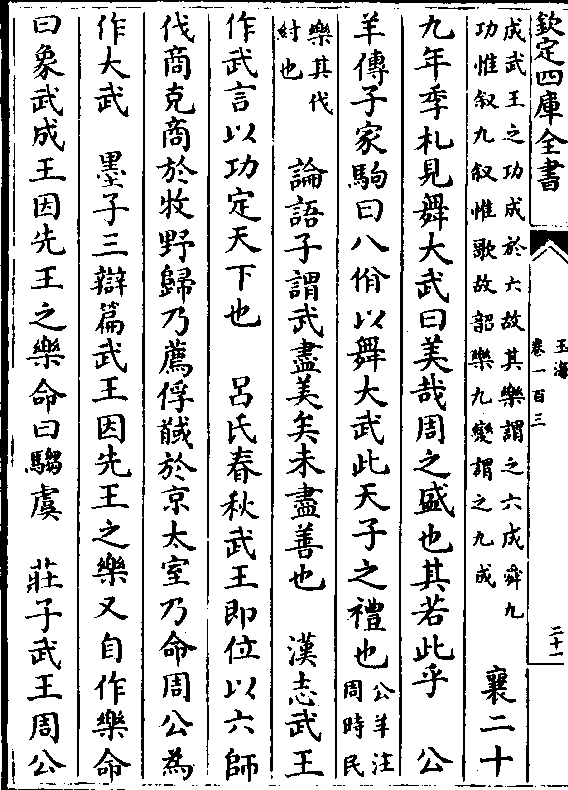 欽定四庫全書
玉海
卷一百三
二十一
成武王之功成於六故其樂謂之六成舜九
功惟叙九叙惟歌故韶樂九變謂之九成
襄二十
九年季札見舞大武曰美哉周之盛也其若此乎 公
羊傳子家駒曰八佾以舞大武此天子之禮也
公羊注
周時民
樂其伐
紂也
論語子謂武盡美矣未盡善也 漢志武王
作武言以功定天下也 呂氏春秋武王即位以六師
伐商克商於牧野歸乃薦俘馘於京太室乃命周公為
作大武 墨子三辯篇武王因先王之樂又自作樂命
曰象武成王因先王之樂命曰騶虞 莊子武王周公